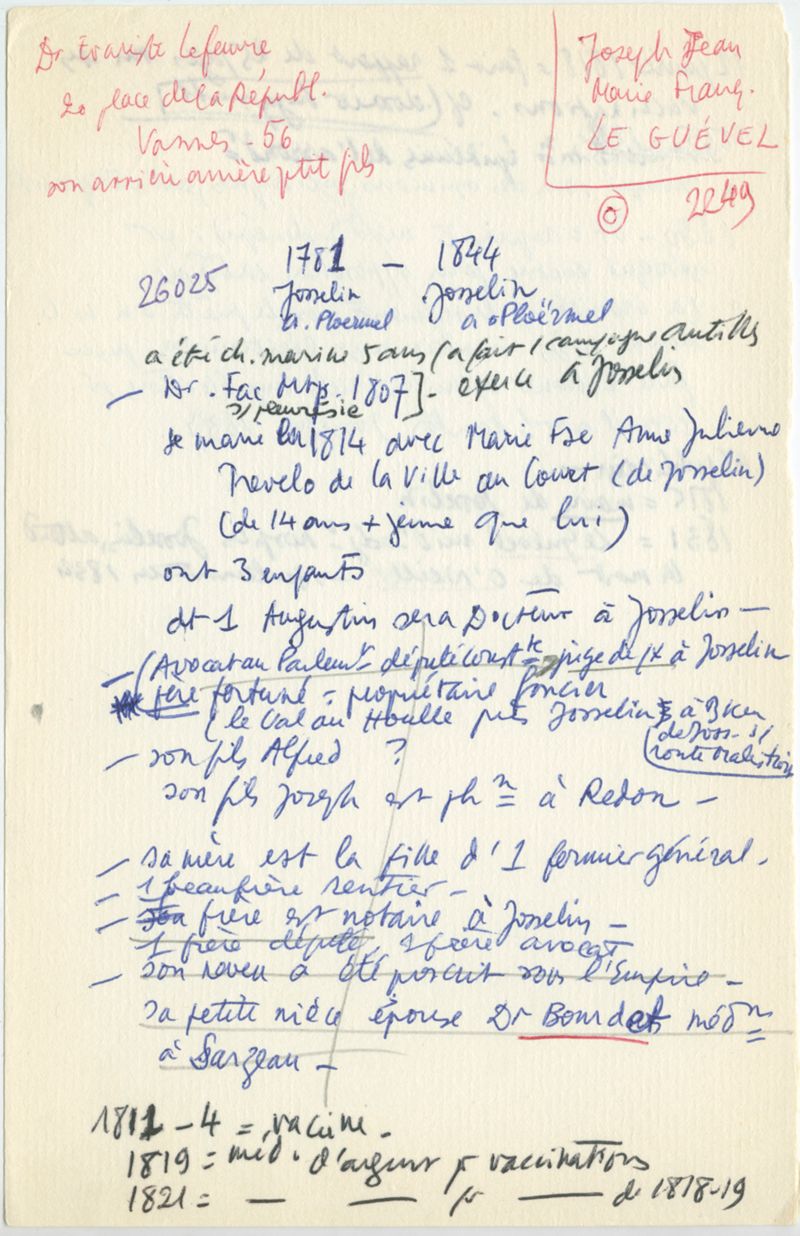 Dr Evariste Lefeuvre
20 place de la Républ.
Vannes - 56
son arrière arrière ptit fils
Joseph Jean
Marie Franç.
LE GUÉVEL
2249
1781 - 1844
26025
Josselin Josselin
a. Ploermel a. Ploërmel
a été ch. marine 5 ans (a fait 1 campagne Antilles
- Dr. Fac Mtp. 1807]. exerce à Josselin
s/ pleurésie
se marie en 1814 avec Marie Fse Anne Julienne
Trevelo de la Ville au Couet (de Josselin)
(de 14 ans + jeune que lui)
ont 3 enfants
dt 1 Augustin sera Docteur à Josselin -
- (Avocat au Parlemt - député constte = juge de px à Josselin
père fortuné = propriétaire foncier
(le Val au Houlle près Josselin à 3 km
de Joss. s/
route Malestroit
- son fils Alfred ?
son fils Joseph est phn à Redon -
- sa mère est la fille d'1 fermier général.
- 1 beau frère rentier -
- frère est notaire à Josselin -
1 frère député, 1 frère avocat
- son neveu a été proscrit sous l'Empire -
sa petite nièce épouse Dr Bourdet médn
à Sarzeau -
1811 - 4 = vaccine -
1819 = méd. d'argent pr vaccinations
1821 = — — pr — de 1818-19